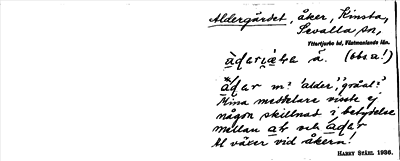 Aldergärdet, åker, Kinsta,
Sevalla sn,
Yttertjurbo hd, Västmanlands län.
å. (obs a!)
m? "alder", "gråal?"
Mina meddelare visste ej
någon skillnad i betydelse
mellan al och adar
Al växer vid åkern!
HARRY STÅHL 1936.